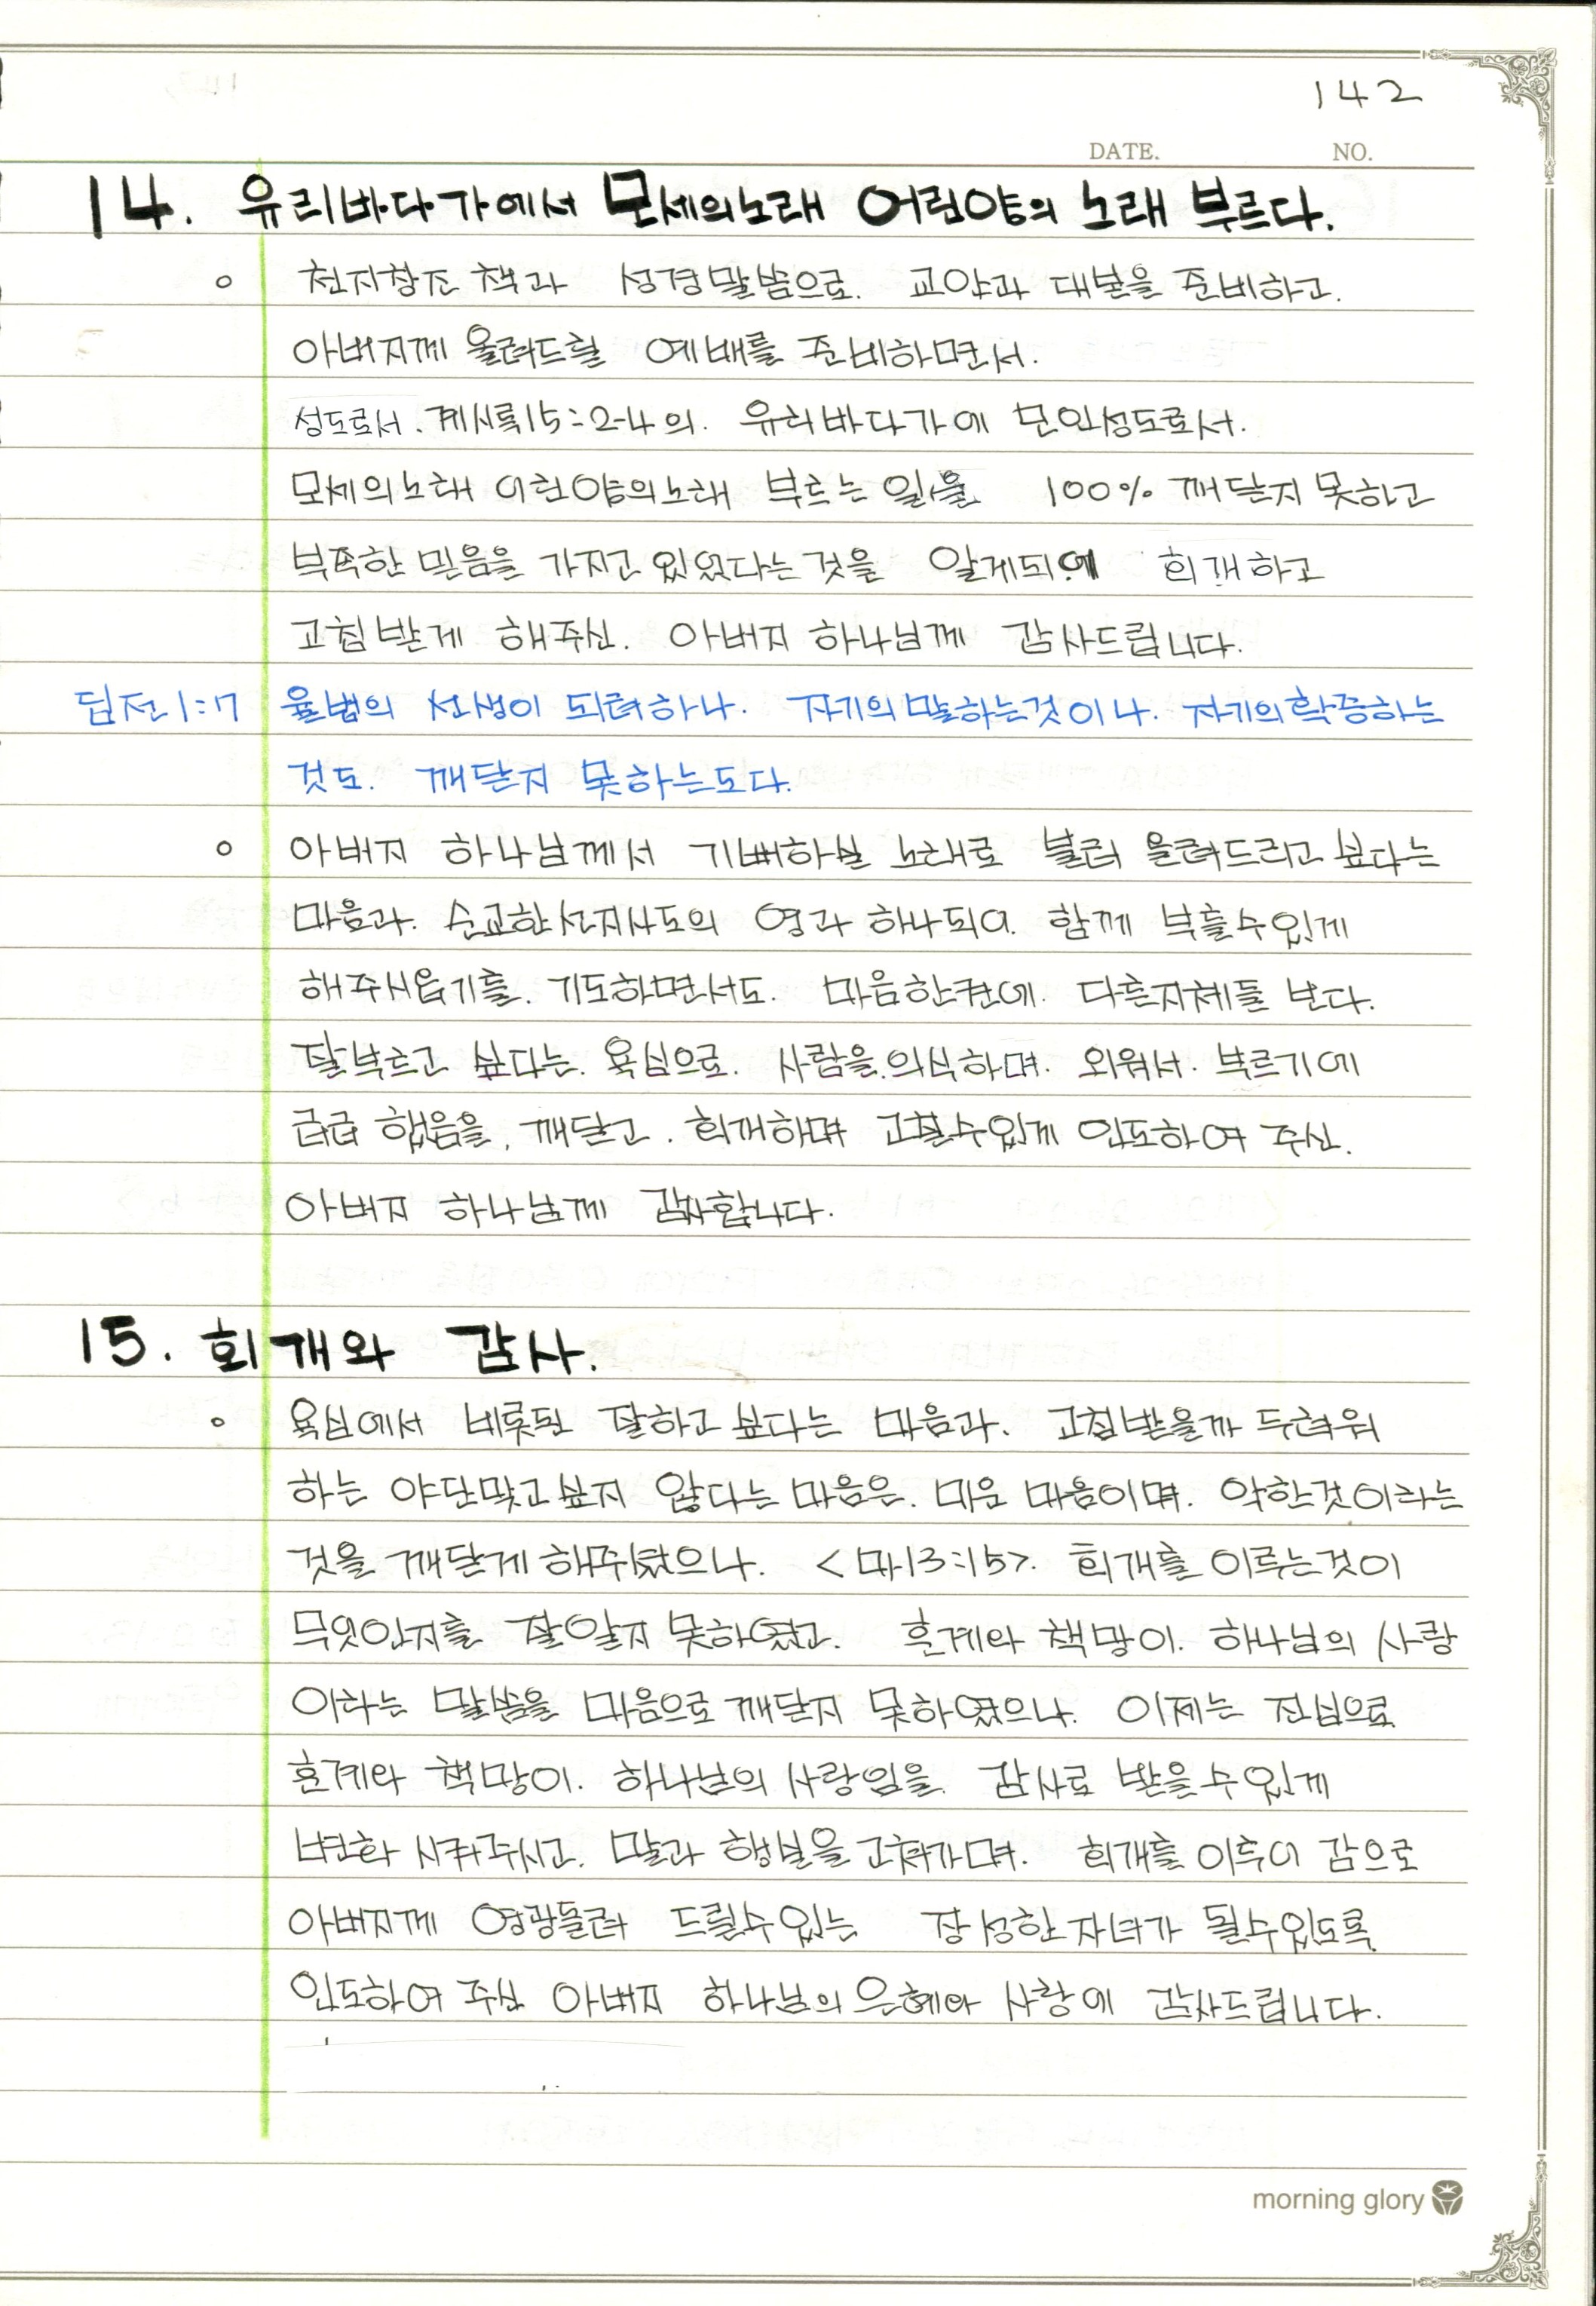 142
DATE. NO.
14. 유리바다가에서 모세의노래 어린양의 노래 부르다.
○ 천지창조 책과 성경말씀으로. 교안과 대본을 준비하고.
아버지께 올려드릴 예배를 준비하면서.
성도로서. 계시록15:2-4의. 유리바다가에 모인성도로서.
모세의노래 어린양의노래 부르는 일을 100% 깨닫지 못하고
부족한 믿음을 가지고 있었다는것을 알게되어 회개하고
고침받게 해주신. 아버지 하나님께 감사드립니다.
딤전1:7 율법의 선생이 되려하나. 자기의말하는것이나. 자기의확증하는
것도. 깨닫지 못하는도다.
○ 아버지 하나님께서 기뻐하실 노래로 불러 올려드리고 싶다는
마음과. 순교한선지사도의 영과 하나되어. 함께 부를수있게
해주시옵기를. 기도하면서도. 마음한켠에. 다른지체들 보다.
잘부르고 싶다는. 욕심으로. 사람을.의식하며. 외워서. 부르기에
급급 했음을. 깨닫고. 회개하며 고칠수있게 인도하여 주신.
아버지 하나님께 감사합니다.
15. 회개와 감사.
○ 욕심에서 비롯된 잘하고 싶다는 마음과. 고침받을까 두려워
하는 야단맞고싶지 않다는 마음은. 미운 마음이며. 악한것이라는
것을 깨닫게 해주셨으나. <마13:15>. 회개를 이루는것이
무엇인지를 잘알지 못하였고. 훈계와 책망이. 하나님의 사랑
이라는 말씀을 마음으로 깨닫지 못하였으나. 이제는 진심으로
훈계와 책망이. 하나님의 사랑임을. 감사로 받을수있게
변화 시켜주시고. 말과 행실을 고쳐가며. 회개를 이루어 감으로
아버지께 영광돌려 드릴수있는 장성한자녀가 될수있도록
인도하여 주신 아버지 하나님의 은혜와 사랑에 감사드립니다.
morning glory